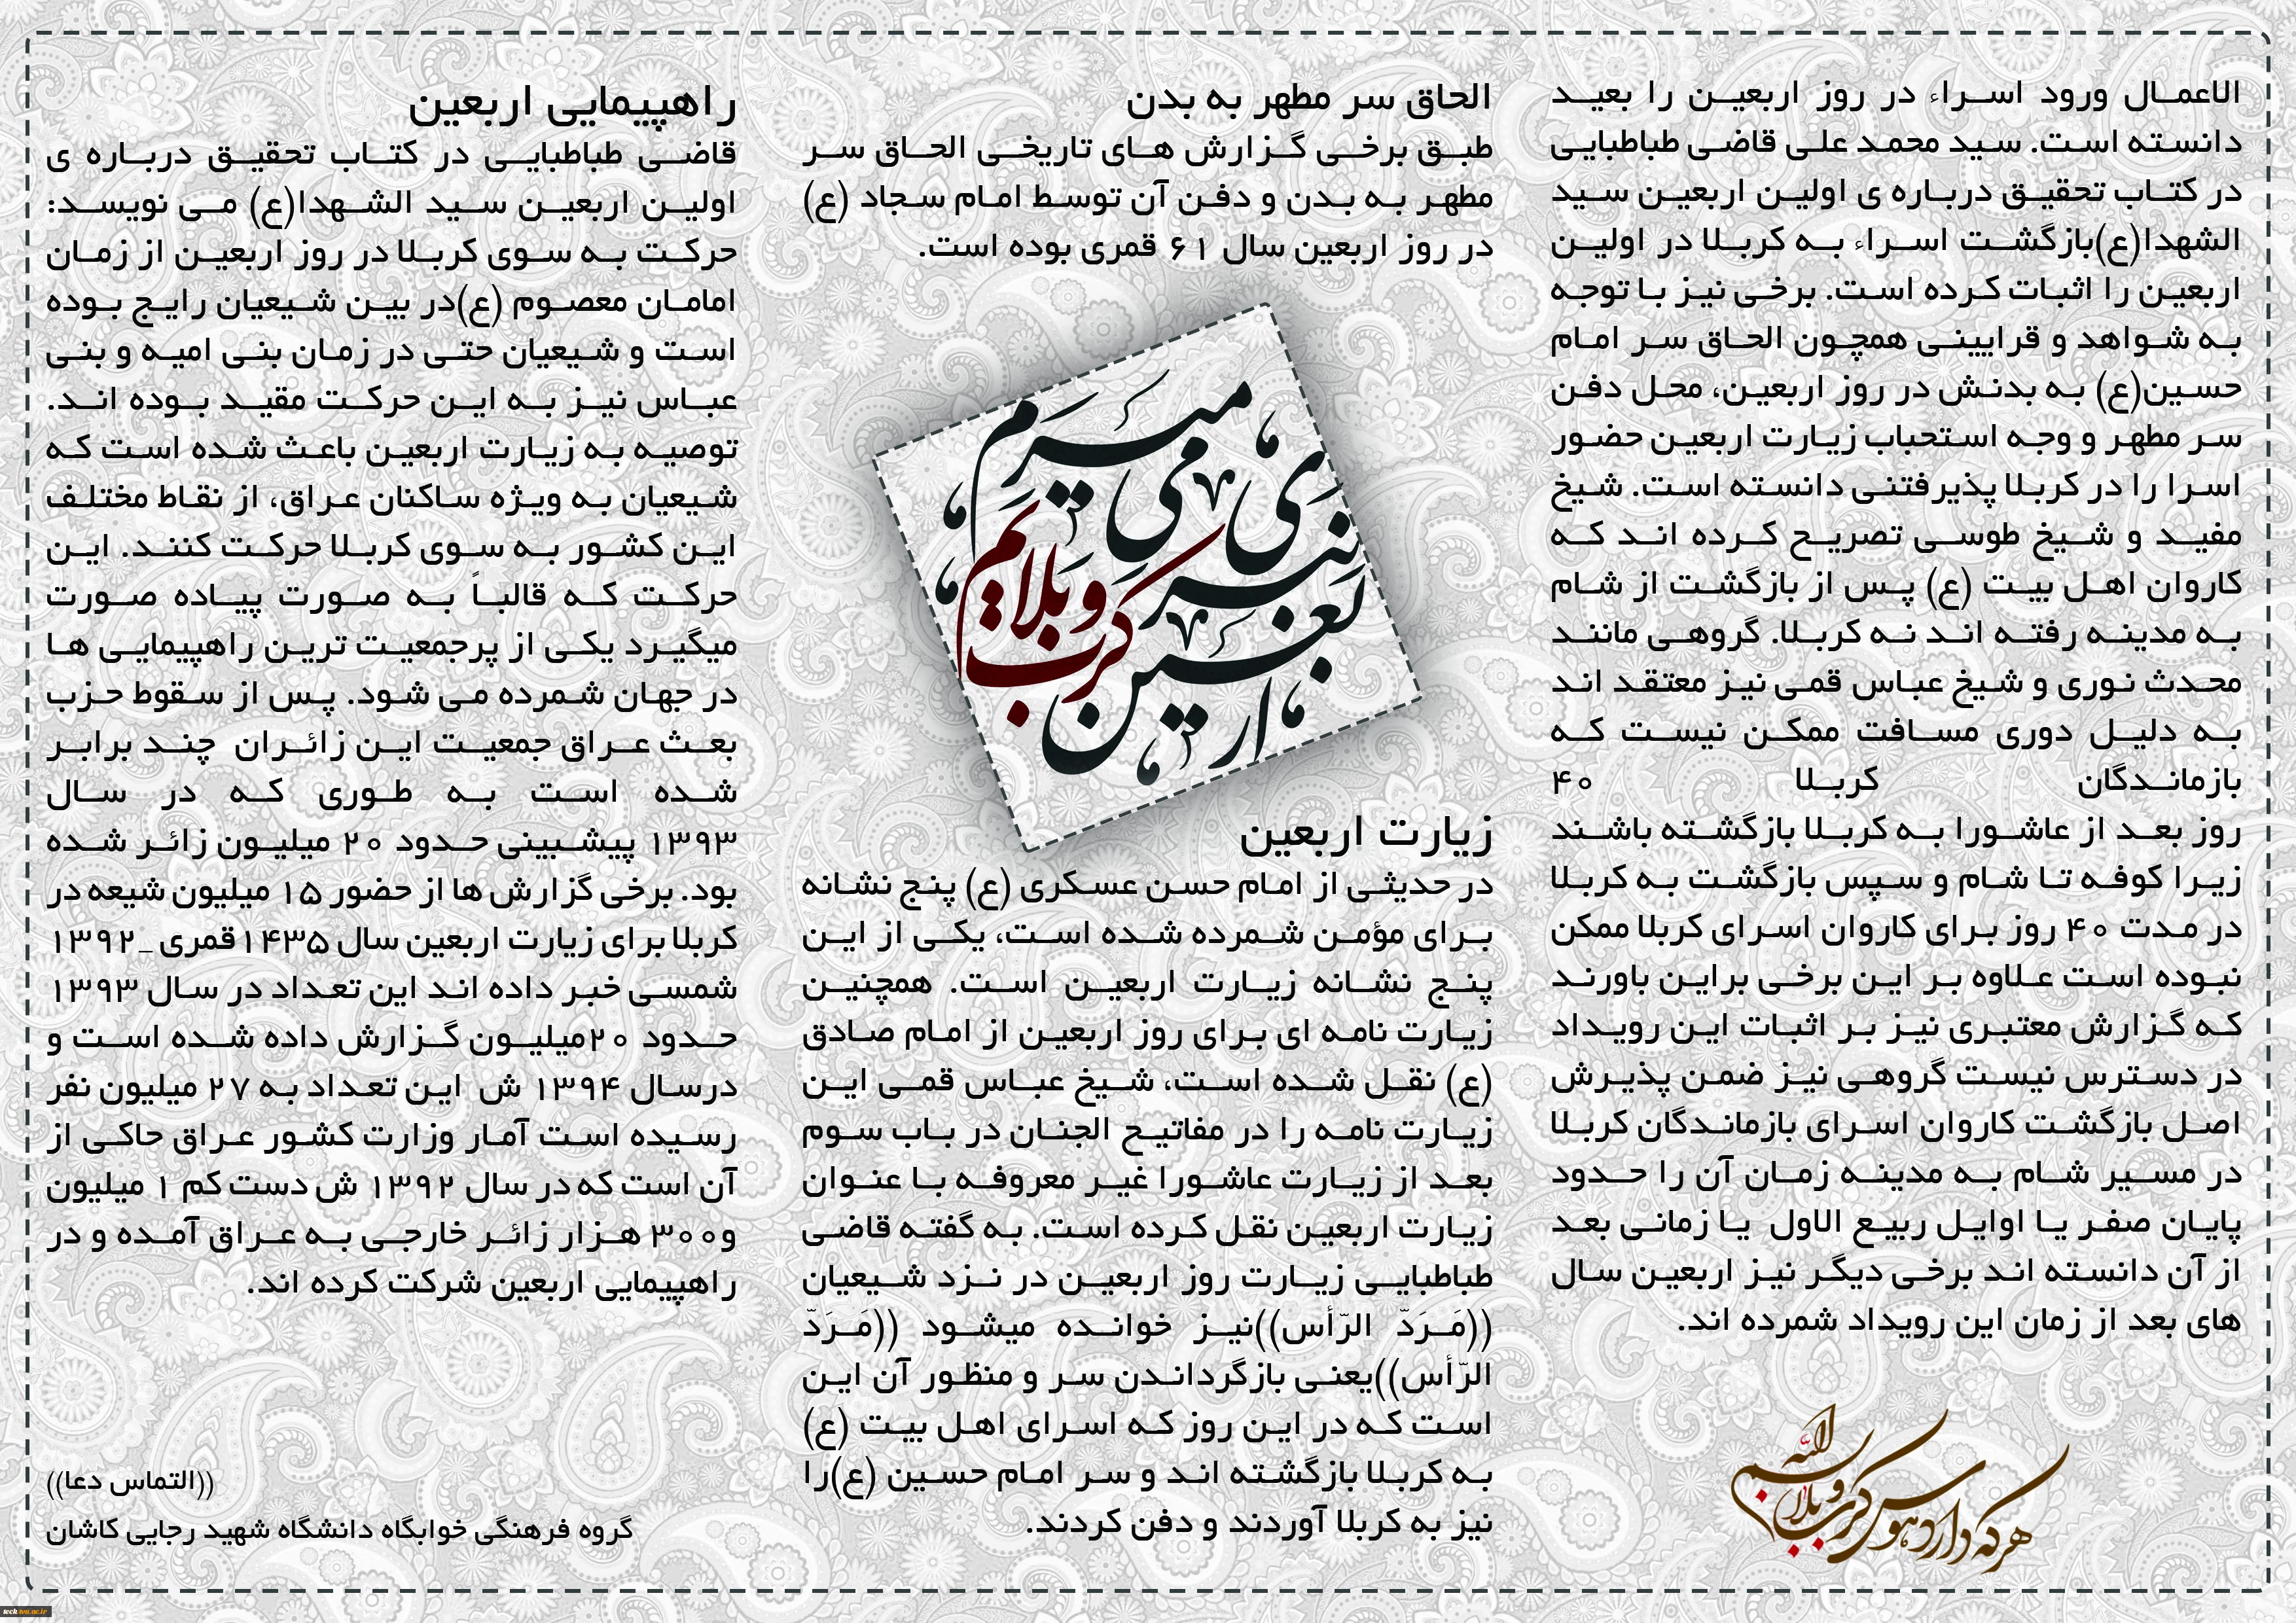 الاعمال ورود اسراء در روز اربعین را بعید
دانسته است. سید محمد علی قاضی طباطبایی
در کتاب تحقیق درباره ی اولین اربعین سید
الشهدا(ع)بازگشت اسراء به کربلا در اولین
اربعین را اثبات کرده است. برخی نیز با توجه
به شواهد و قرایینی همچون الحاق سر امام
حسین(ع) به بدنش در روز اربعین، محل دفن
سر مطهر و وجه استحباب زیارت اربعین حضور
اسرا را در کربلا پذیرفتنی دانسته است. شیخ
مفید و شیخ طوسی تصریح کرده اند که
کاروان اهل بیت (ع) پس از بازگشت از شام
به مدینه رفته اند نه کربلا. گروهی مانند
محدث نوری و شیخ عباس قمی نیز معتقد اند
به دلیل دوری مسافت ممکن نیست که
بازماندگان کربلا ۴۰
روز بعد از عاشورا به کربلا بازگشته باشند
زیرا کوفه تا شام و سپس بازگشت به کربلا
در مدت ۴۰ روز برای کاروان اسرای کربلا ممکن
نبوده است علاوه بر این برخی براین باورند
که گزارش معتبری نیز بر اثبات این رویداد
در دسترس نیست گروهی نیز ضمن پذیرش
اصل بازگشت کاروان اسرای بازماندگان کربلا
در مسیر شام به مدینه زمان آن را حدود
پایان صفر یا اوایل ربیع الاول یا زمانی بعد
از آن دانسته اند برخی دیگر نیز اربعین سال
های بعد از زمان این رویداد شمرده اند.
هر که دارد هوس کرب و بلا بسم الله
الحاق سر مطهر به بدن
طبق برخی گزارش های تاریخی الحاق سر
مطهر به بدن و دفن آن توسط امام سجاد (ع)
در روز اربعین سال ۶۱ قمری بوده است.
میرم
ی می
نبر کرب و بلایم
اربعین
زیارت اربعین
در حدیثی از امام حسن عسکری (ع) پنج نشانه
برای مؤمن شمرده شده است، یکی از این
پنج نشانه زیارت اربعین است. همچنین
زیارت نامه ای برای روز اربعین از امام صادق
(ع) نقل شده است، شیخ عباس قمی این
زیارت نامه را در مفاتیح الجنان در باب سوم
بعد از زیارت عاشورا غیر معروفه با عنوان
زیارت اربعین نقل کرده است. به گفته قاضی
طباطبایی زیارت روز اربعین در نزد شیعیان
((مَرَدّ الرّأس))نیز خوانده میشود ((مَرَدّ
الرّأس))یعنی بازگرداندن سر و منظور آن این
است که در این روز که اسرای اهل بیت (ع)
به کربلا بازگشته اند و سر امام حسین (ع)را
نیز به کربلا آوردند و دفن کردند.
راهپیمایی اربعین
قاضی طباطبایی در کتاب تحقیق درباره ی
اولین اربعین سید الشهدا(ع) می نویسد:
حرکت به سوی کربلا در روز اربعین از زمان
امامان معصوم (ع)در بین شیعیان رایج بوده
است و شیعیان حتی در زمان بنی امیه و بنی
عباس نیز به این حرکت مقید بوده اند.
توصیه به زیارت اربعین باعث شده است که
شیعیان به ویژه ساکنان عراق، از نقاط مختلف
این کشور به سوی کربلا حرکت کنند. این
حرکت که قالباً به صورت پیاده صورت
میگیرد یکی از پرجمعیت ترین راهپیمایی ها
در جهان شمرده می شود. پس از سقوط حزب
بعث عراق جمعیت این زائران چند برابر
شده است به طوری که در سال
۱۳۹۳ پیشبینی حدود ۲۰ میلیون زائر شده
بود. برخی گزارش ها از حضور ۱۵ میلیون شیعه در
کربلا برای زیارت اربعین سال ۱۴۳۵قمری _۱۳۹۲
شمسی خبر داده اند این تعداد در سال ۱۳۹۳
حدود ۲۰میلیون گزارش داده شده است و
درسال ۱۳۹۴ ش این تعداد به ۲۷ میلیون نفر
رسیده است آمار وزارت کشور عراق حاکی از
آن است که در سال ۱۳۹۲ ش دست کم ۱ میلیون
و۳۰۰ هزار زائر خارجی به عراق آمده و در
راهپیمایی اربعین شرکت کرده اند.
((التماس دعا))
گروه فرهنگی خوابگاه دانشگاه شهید رجایی کاشان
tech-tvu.ac.ir